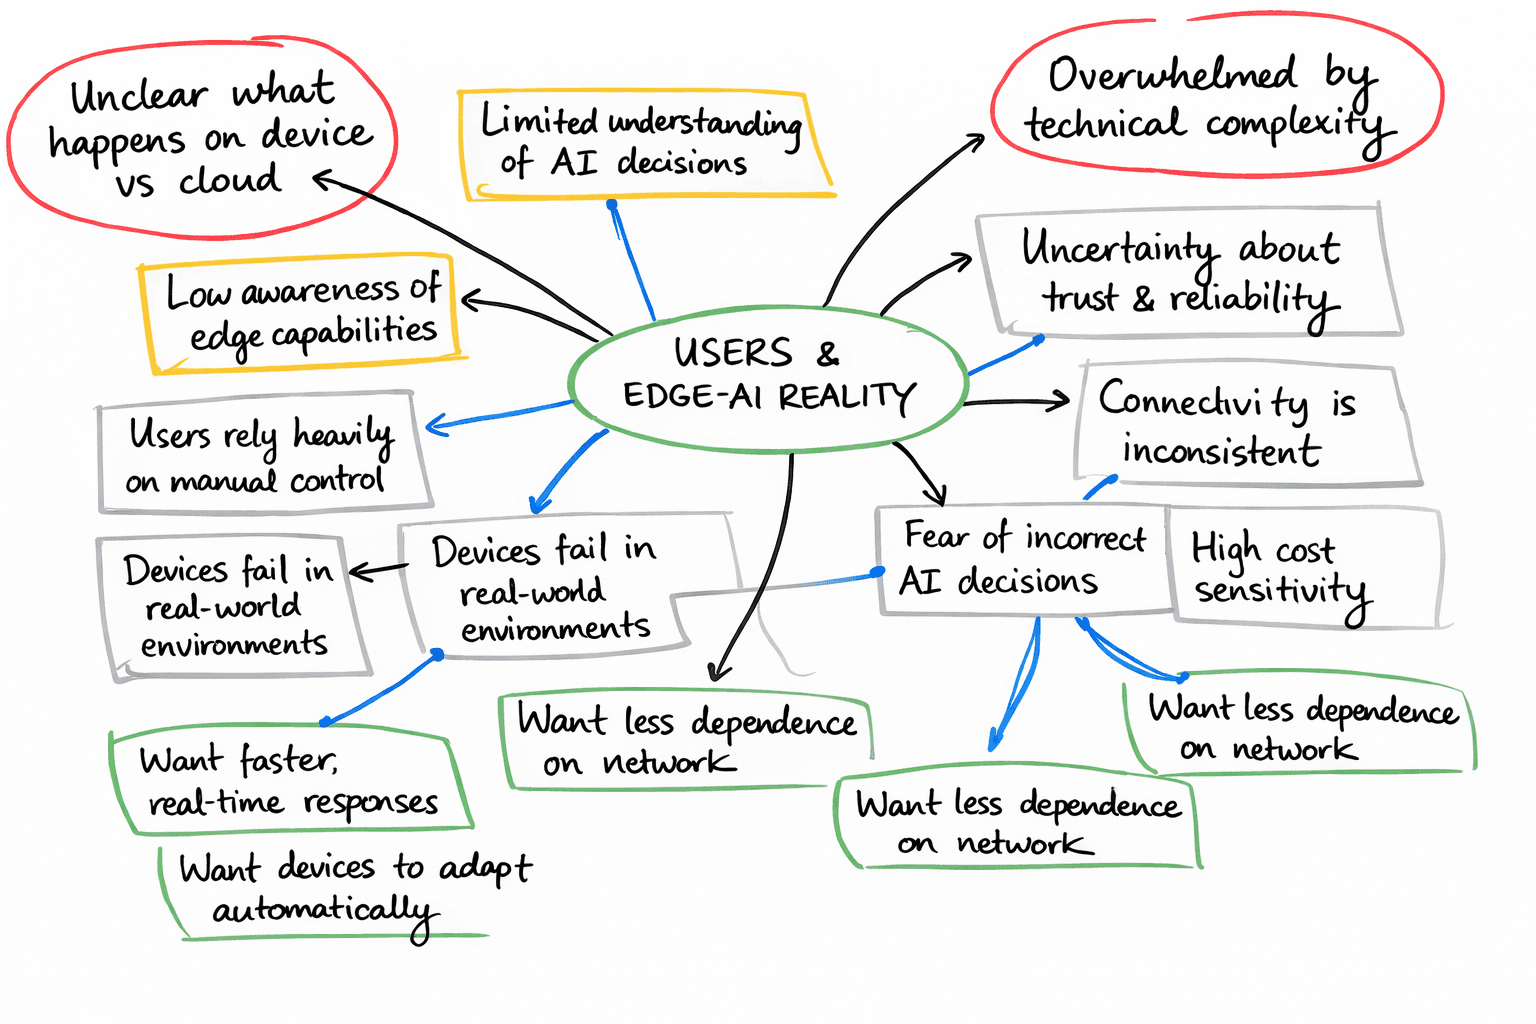 Unclear what
happens on device
vs cloud
Limited understanding
of AI decisions
Overwhelmed by
technical complexity
Low awareness of
edge capabilities
Uncertainty about
trust & reliability
USERS &
EDGE-AI REALITY
Users rely heavily
on manual control
Connectivity is
inconsistent
Devices fail in
real-world
environments
Devices fail in
real-world
environments
Fear of incorrect
AI decisions
High cost
sensitivity
Want faster,
real-time responses
Want less dependence
on network
Want less dependence
on network
Want less dependence
on network
Want devices to adapt
automatically